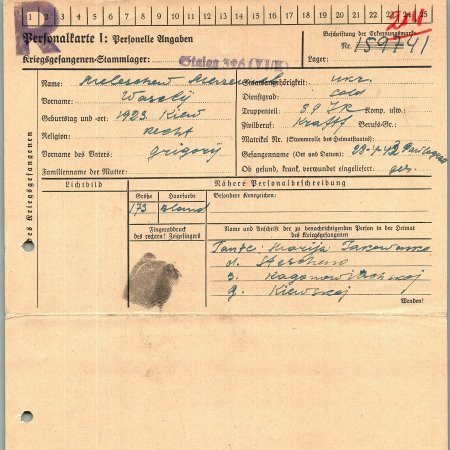 1 2 3 4 5 6 7 8 9 10 11 12 13 14 15 16 17 18 19 20 21 22 23 24 25
R
Personalkarte I: Personelle Angaben
Beschriftung der Erkennungsmarke
Kriegsgefangenen-Stammlager: Stalag 326 (VI K)
Nr. 159741
Lager:
des Kriegsgefangenen
Name:
Staatsangehörigkeit: ukr.
Vorname: Wasely
Dienstgrad: Sold
Geburtstag und -ort: 1923 Kiew
Truppenteil: 39 IR Komp. usw.:
Religion: recht
Zivilberuf: Kraftf Berufs-Gr.:
Vorname des Vaters: Grigorij
Matrikel Nr. (Stammrolle des Heimatstaates):
Gefangenname (Ort und Datum): 22-4-42
Familienname der Mutter:
Ob gefund, krank, verwundet eingeliefert: ges.
Lichtbild
Nähere Personalbeschreibung
Größe Haarfarbe Besondere Kennzeichen:
173 Blond
Fingerabdruck des rechten! Zeigefingers
Name und Anschrift der zu benachrichtigenden Person in der Heimat des Kriegsgefangenen
Tante: Marija
d.
g. Kiewskoj
Wenden!